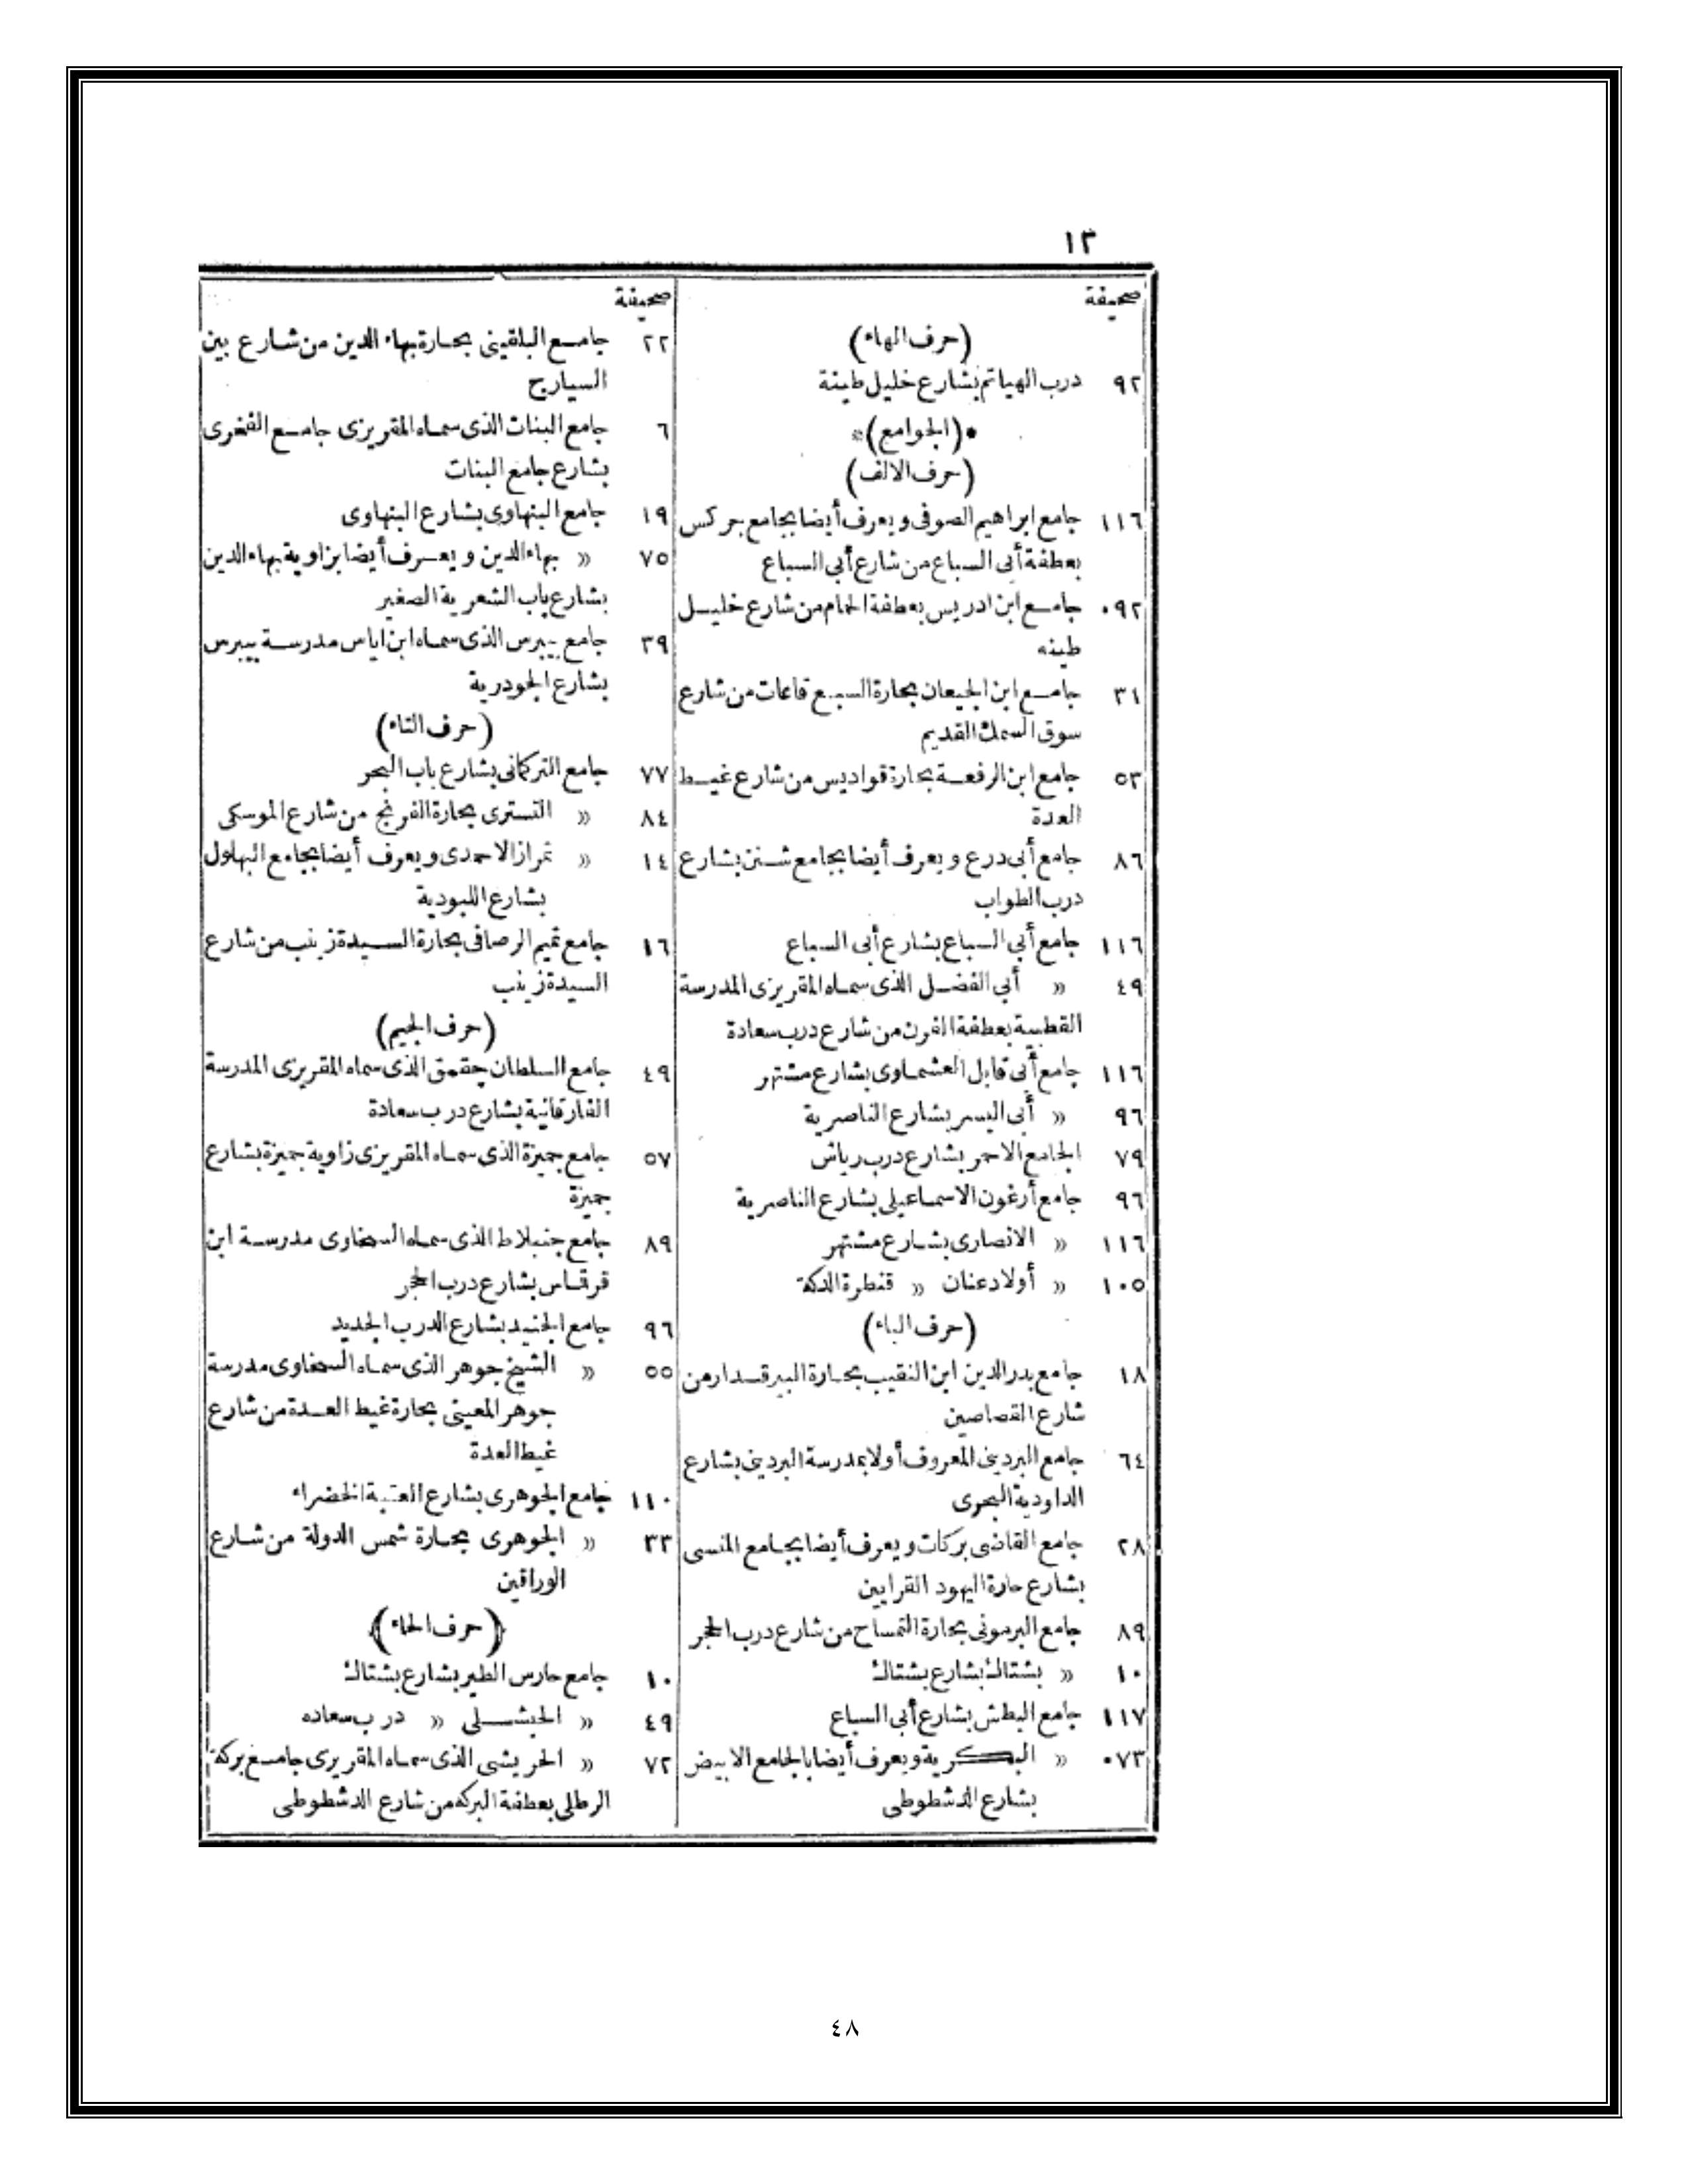 ١٣
صحيفة
(حرف الهاء)
٩٢ درب الهياتم بشارع خليل طينة
*(الجوامع)*
(حرف الالف)
١١٦ جامع ابراهيم الصوفى ويعرف أيضا بجامع جركس
بعطفة أبى السباع من شارع أبى السباع
٠٩٢ جامع ابن ادريس بعطفة الحمام من شارع خليل
طينه
٣١ جامع ابن الجيعان بحارة السبع قاعات من شارع
سوق السمك القديم
٥٣ جامع ابن الرفعة بحارة قواديس من شارع غيط
العدة
٨٦ جامع أبى درع ويعرف أيضا بجامع شنن بشارع
درب الطواب
١١٦ جامع أبى السباع بشارع أبى السباع
٤٩ « أبى الفضل الذى سماه المقريزى المدرسة
القطبية بعطفة الفرن من شارع درب سعادة
١١٦ جامع أبى قابل العشماوى بشارع مشتهر
٩٦ « أبى اليسر بشارع الناصرية
٧٩ الجامع الاحمر بشارع درب رياش
٩٦ جامع أرغون الاسماعيلى بشارع الناصرية
١١٦ « الانصارى بشارع مشتهر
١٠٥ « أولاد عنان « قنطرة الدكة
(حرف الباء)
١٨ جامع بدر الدين ابن النقيب بحارة البيرقدار من
شارع القصاصين
٦٤ جامع البردينى المعروف أولا بمدرسة البردينى بشارع
الداودية البحرى
٢٨ جامع القاضى بركات ويعرف أيضا بجامع المنسى
بشارع حارة اليهود القرايين
٨٩ جامع البرمونى بحارة التمساح من شارع درب الحجر
١٠ « بشتاك بشارع بشتاك
١١٧ جامع البطش بشارع أبى السباع
٠٧٣ « البكرية ويعرف أيضا بالجامع الابيض
بشارع الدشطوطى
صحيفة
٢٢ جامع البلقينى بحارة بهاء الدين من شارع بين
السيارج
٦ جامع البنات الذى سماه المقريزى جامع الفخرى
بشارع جامع البنات
١٩ جامع البنهاوى بشارع البنهاوى
٧٥ « بهاء الدين ويعرف أيضا بزاوية بهاء الدين
بشارع باب الشعرية الصغير
٣٩ جامع بيبرس الذى سماه ابن اياس مدرسة بيبرس
بشارع الجودرية
(حرف التاء)
٧٧ جامع التركمانى بشارع باب البحر
٨٤ « التسترى بحارة الفرنج من شارع الموسكى
١٤ « تمراز الاحمدى ويعرف أيضا بجامع البهلول
بشارع اللبودية
١٦ جامع تميم الرصافى بحارة السيدة زينب من شارع
السيدة زينب
(حرف الجيم)
٤٩ جامع السلطان جقمق الذى سماه المقريزى المدرسة
الفارقانية بشارع درب سعادة
٥٧ جامع جميزة الذى سماه المقريزى زاوية جميزة بشارع
جميزة
٨٩ جامع جنبلاط الذى سماه السخاوى مدرسة ابن
قرقماس بشارع درب الحجر
٩٦ جامع الجنيد بشارع الدرب الجديد
٥٥ « الشيخ جوهر الذى سماه السخاوى مدرسة
جوهر المعينى بحارة غيط العدة من شارع
غيط العدة
١١٠ جامع الجوهرى بشارع العتبة الخضراء
٣٣ « الجوهرى بحارة شمس الدولة من شارع
الوراقين
(حرف الحاء)
١٠ جامع حارس الطير بشارع بشتاك
٤٩ « الحبشلى « درب سعاده
٧٢ « الحريشى الذى سماه المقريزى جامع بركة
الرطلى بعطفة البركه من شارع الدشطوطى
٤٨